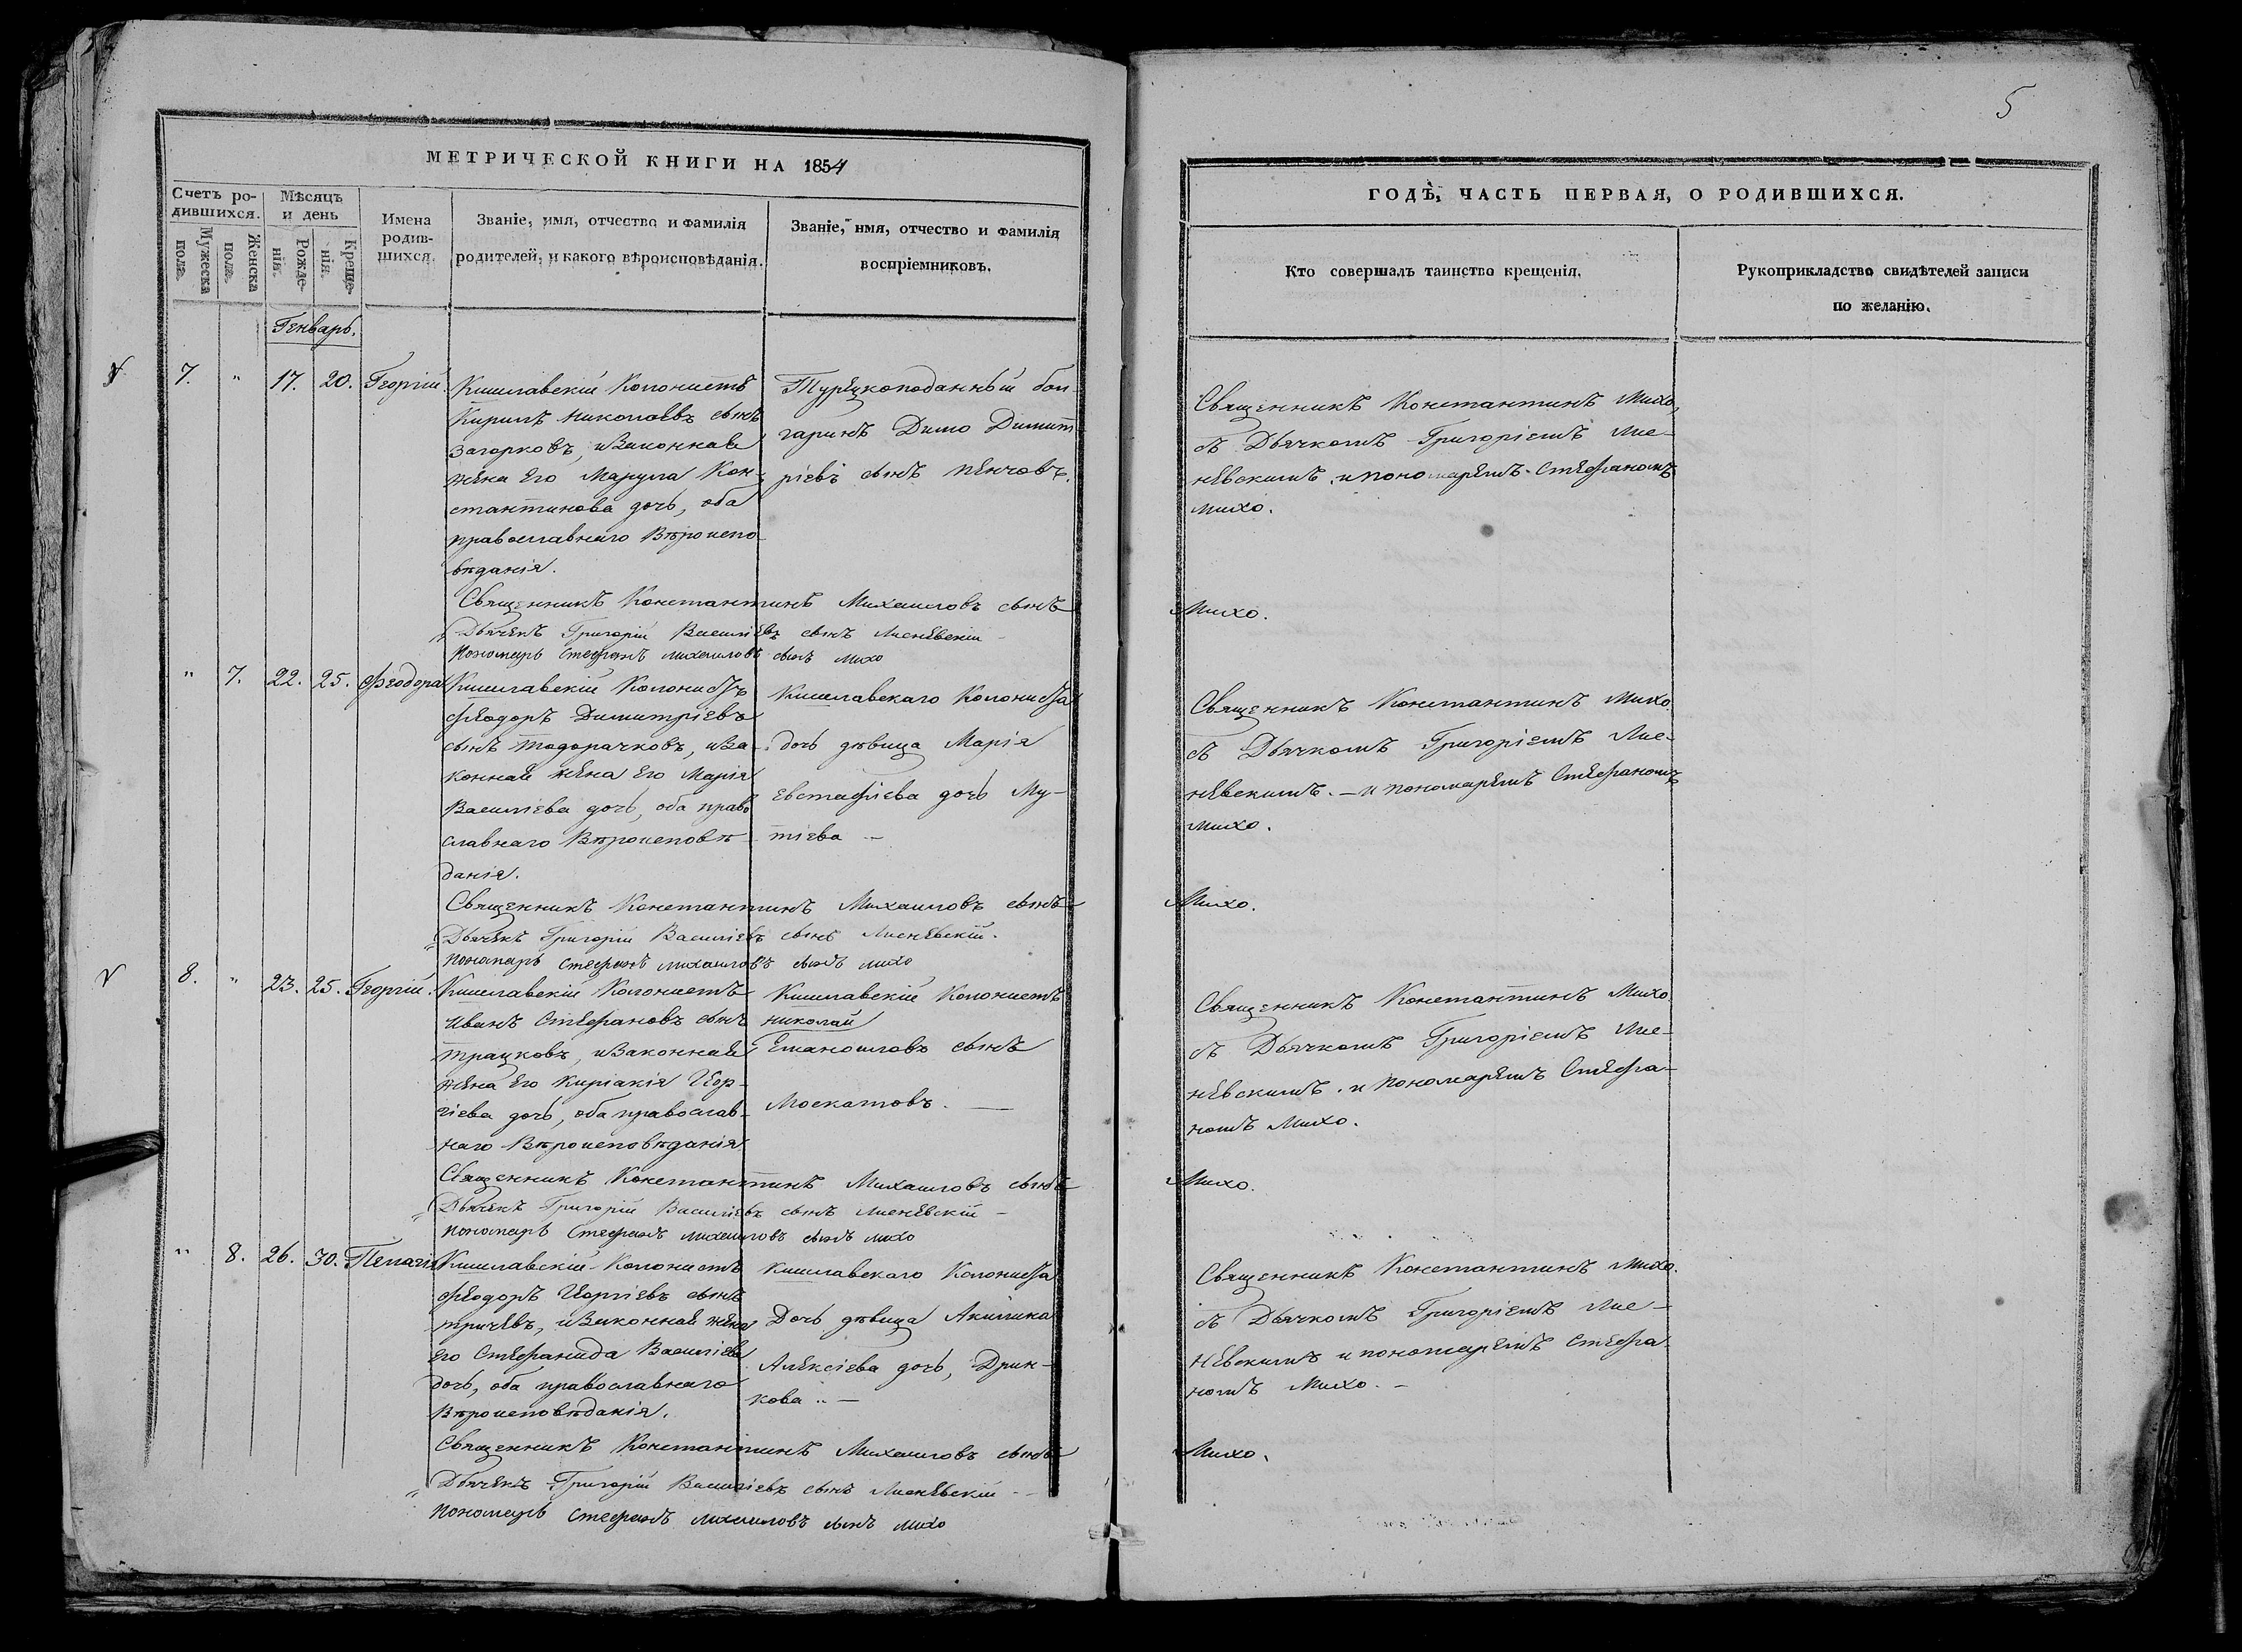 МЕТРИЧЕСКОЙ КНИГИ НА 1854
Счетъ ро-
дившихся.
Мужеска
пола.
Женска
пола.
Мѣсяцъ
и день
Рожде-
нія.
Креще-
нія.
Имена
родив-
шихся.
Званіе, имя, отчество и фамилія
родителей, и какого вѣроисповѣданія.
Званіе, имя, отчество и фамилія
воспріемниковъ.
Генварь.
7. " 17. 20. Георгій.
Кишлавскій Колонистъ
Кирилъ Николаевъ сынъ
Загорковъ, и Законная
жена Его Марула Кон-
стантинова дочь, оба
православнаго Вѣроиспо-
вѣданія.
Турецкоподанный бол-
гаринъ Димо Димит
ріевъ сынъ Пенчовъ.
Священникъ Константинъ Михаиловъ сынъ
Дьячекъ Григорій Василіевъ сынъ Лисневскій
Пономарь Стефанъ Михаиловъ сынъ Михо
" 7. 22. 25. Феодора
Кишлавскій Колонистъ
Феодоръ Димитріевъ
сынъ Тодорачковъ, и За-
конная жена Его Марія
Василіева дочь, оба право
славнаго Вѣроисповѣ-
данія.
Кишлавскаго Колониста
дочь дѣвица Марія
Евстафіева дочь Му-
тіева
Священникъ Константинъ Михаиловъ сынъ
Дьячекъ Григорій Василіевъ сынъ Лисневскій.
Пономарь Стефанъ Михаиловъ сынъ Михо
8. " 23. 25. Георгій.
Кишлавскій Колонистъ
Иванъ Стефановъ сынъ
Трацковъ, и Законная
жена Его Киріакія Геор-
гіева дочь, оба православ-
наго Вѣроисповѣданія
Кишлавскій Колонистъ
Николай
Еманоиловъ сынъ
Москатовъ.
Священникъ Константинъ Михаиловъ сынъ
Дьячекъ Григорій Василіевъ сынъ Лисневскій
Пономарь Стефанъ Михаиловъ сынъ Михо
" 8. 26. 30. Пелагія
Кишлавскій Колонистъ
Феодоръ Георгіевъ сынъ
Тричевъ, и Законная жена
Его Стефанида Василіева
дочь, оба православнаго
Вѣроисповѣданія.
Кишлавскаго Колониста
Дочь дѣвица Акилина
Алексіева дочь, Дрин-
кова
Священникъ Константинъ Михаиловъ сынъ
Дьячекъ Григорій Василіевъ сынъ Лисневскій
Пономарь Стефанъ Михаиловъ сынъ Михо
5
ГОДѢ, ЧАСТЬ ПЕРВАЯ, О РОДИВШИХСЯ.
Кто совершалъ таинство крещенія.
Рукоприкладство свидѣтелей записи
по желанію.
Священникъ Константинъ Михо,
съ Дьячкомъ Григоріемъ Лис-
невскимъ, и пономаремъ Стефаномъ
Михо.
Михо.
Священникъ Константинъ Михо.
съ Дьячкомъ Григоріемъ Лис-
невскимъ. – и пономаремъ Стефаномъ
Михо.
Михо.
Священникъ Константинъ Михо.
съ Дьячкомъ Григоріемъ Лис-
невскимъ. и пономаремъ Стефа-
номъ Михо.
Михо.
Священникъ Константинъ Михо.
съ Дьячкомъ Григоріемъ Лис-
невскимъ и пономаремъ Стефа-
номъ Михо. –
Михо.